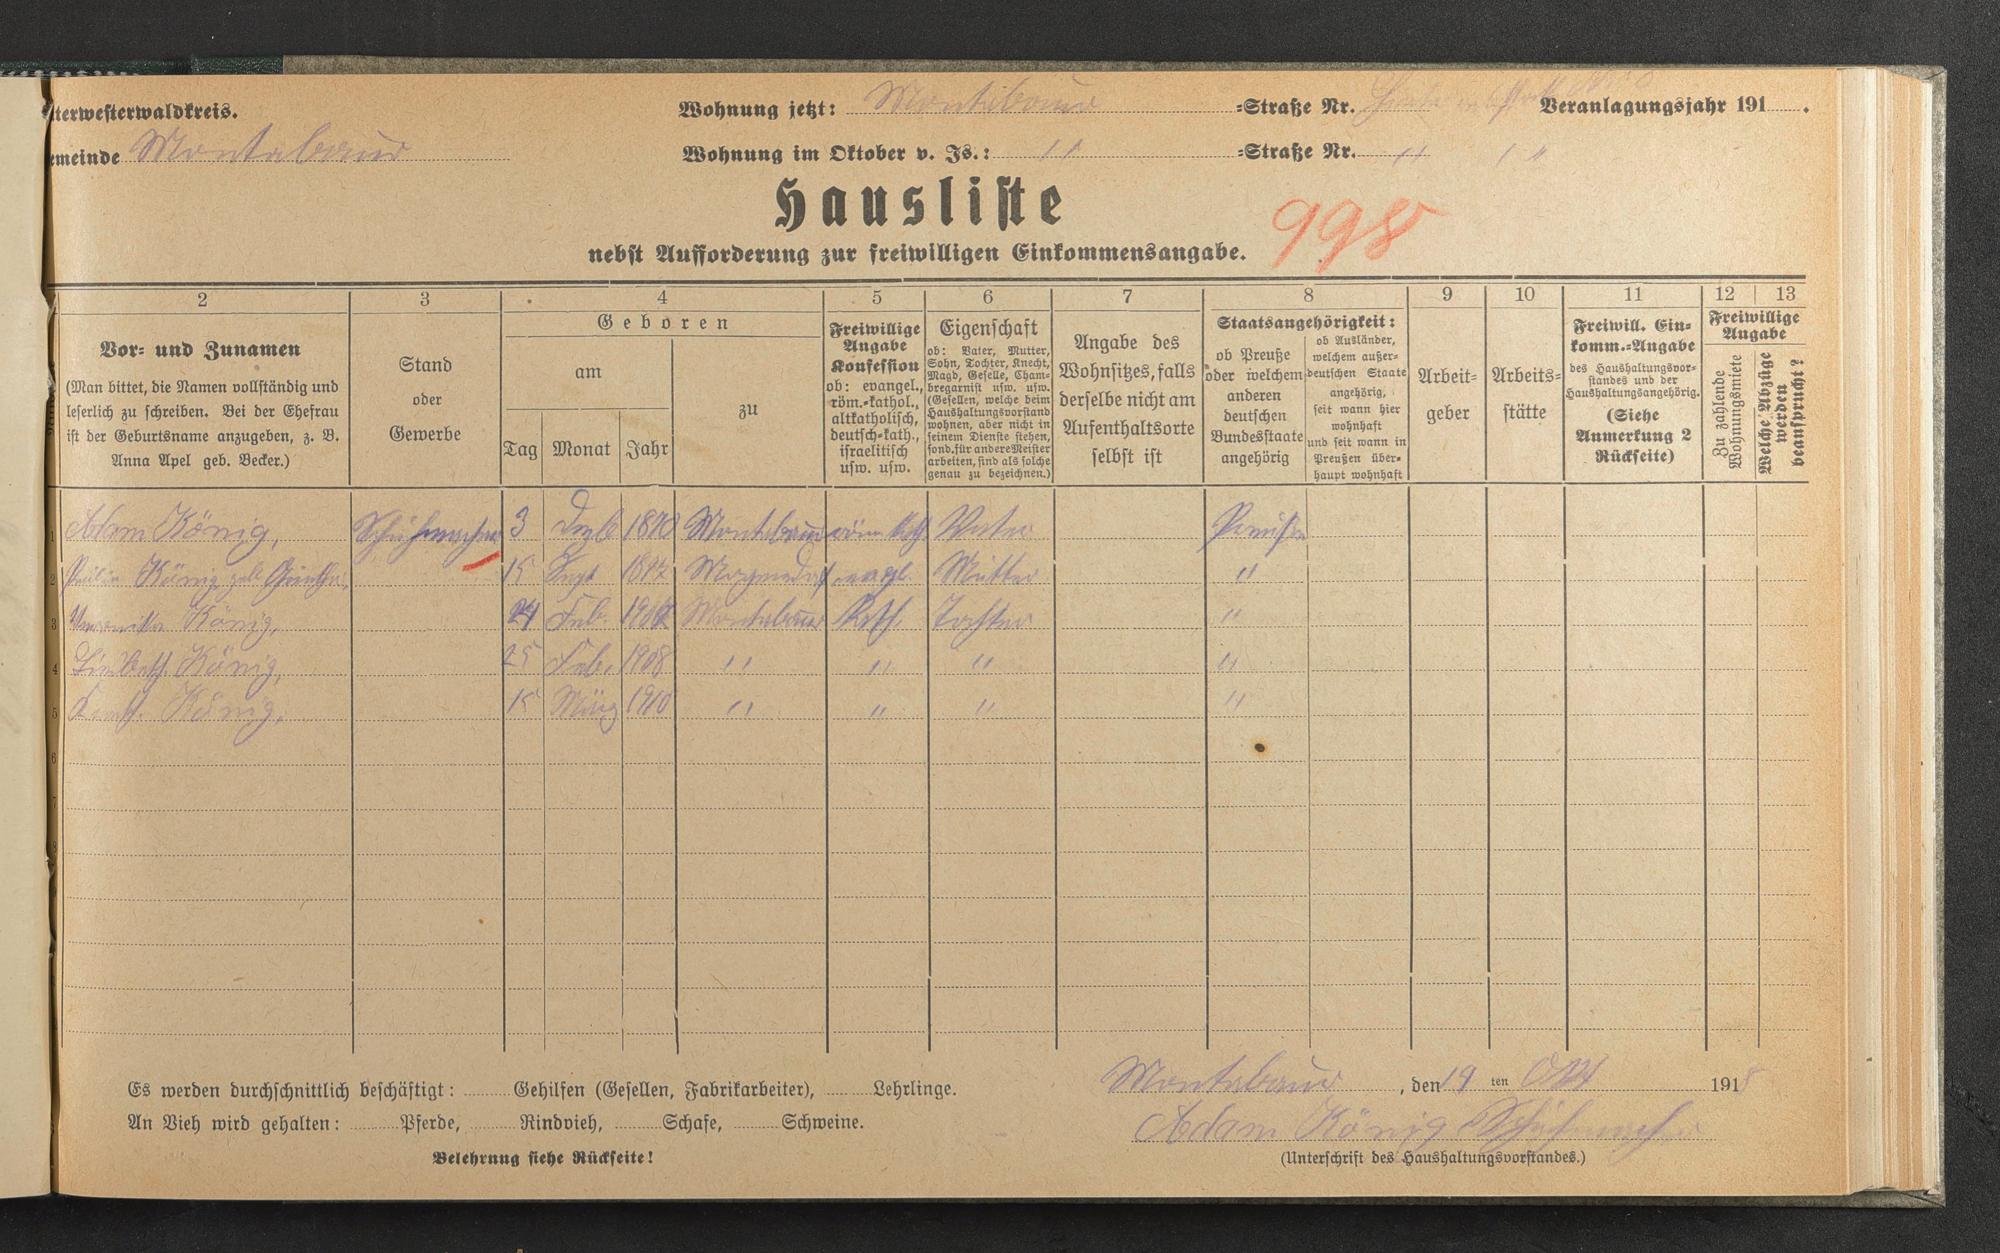 terwesterwaldkreis.
Wohnung jetzt: Montabaur =Straße Nr. Veranlagungsjahr 191 .
emeinde Montabaur
Wohnung im Oktober v. Js.: " =Straße Nr. " "
Hausliste
998
nebst Aufforderung zur freiwilligen Einkommensangabe.
2 3 4 5 6 7 8 9 10 11 12 13
Vor- und Zunamen
(Man bittet, die Namen vollständig und
leserlich zu schreiben. Bei der Ehefrau
ist der Geburtsname anzugeben, z. B.
Anna Apel geb. Becker.)
Stand
oder
Gewerbe
Geboren
am
Tag Monat Jahr
zu
Freiwillige
Angabe
Konfession
ob: evangel.,
röm.-kathol.,
altkatholisch,
deutsch-kath.,
israelitisch
usw. usw.
Eigenschaft
ob: Vater, Mutter,
Sohn, Tochter, Knecht,
Magd, Geselle, Cham-
bregarnist usw. usw.
(Gesellen, welche beim
Haushaltungsvorstand
wohnen, aber nicht in
seinem Dienste stehen,
sond. für andere Meister
arbeiten, sind als solche
genau zu bezeichnen.)
Angabe des
Wohnsitzes, falls
derselbe nicht am
Aufenthaltsorte
selbst ist
Staatsangehörigkeit:
ob Preuße
oder welchem
anderen
deutschen
Bundesstaate
angehörig
ob Ausländer,
welchem außer-
deutschen Staate
angehörig,
seit wann hier
wohnhaft
und seit wann in
Preußen über-
haupt wohnhaft
Arbeit-
geber
Arbeits-
stätte
Freiwill. Ein-
komm.-Angabe
des Haushaltungsvor-
standes und der
Haushaltungsangehörig.
(Siehe
Anmerkung 2
Rückseite)
Freiwillige
Angabe
Zu zahlende
Wohnungsmiete
Welche Abzüge
werden
beansprucht?
1 Adam König, Schuhmacher 3 Dezb 1870 Montabaur röm. Kath Vater Preuße
2 König geb. 15 Sept evgl. Mutter "
3 Veronika König, 24 Feb. Montabaur Kath. Tochter "
4 Lisbeth König, 25 Feb. 1908 " " " "
5 König, 15 März 1910 " " " "
6
7
8
Es werden durchschnittlich beschäftigt: Gehilfen (Gesellen, Fabrikarbeiter), Lehrlinge.
Montabaur, den 19 ten Okt 1918
An Vieh wird gehalten: Pferde, Rindvieh, Schafe, Schweine.
Adam König Schuhmacher
Belehrung siehe Rückseite!
(Unterschrift des Haushaltungsvorstandes.)